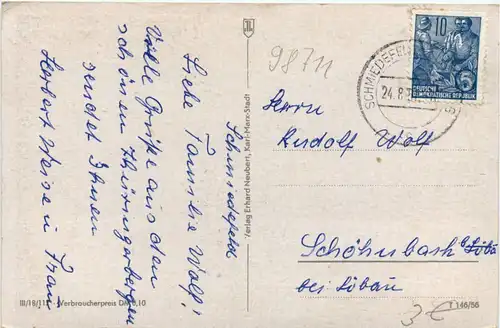 Schmiedefeld
Liebe Familie Wolf!
Viele Grüße aus den
schönen Thüringerbergen
sendet Ihnen
Herbert Weise u. Frau
III/18/111 Verbraucherpreis DM 0,10
Verlag Erhard Neubert, Karl-Marx-Stadt
9871
SCHMIEDEFE
24.8.
10
DEUTSCHE
DEMOKRATISCHE REPUBLIK
Herrn
Rudolf Wolf
Schönbach b/Löbau
bei Löbau
T 146/56
3 €